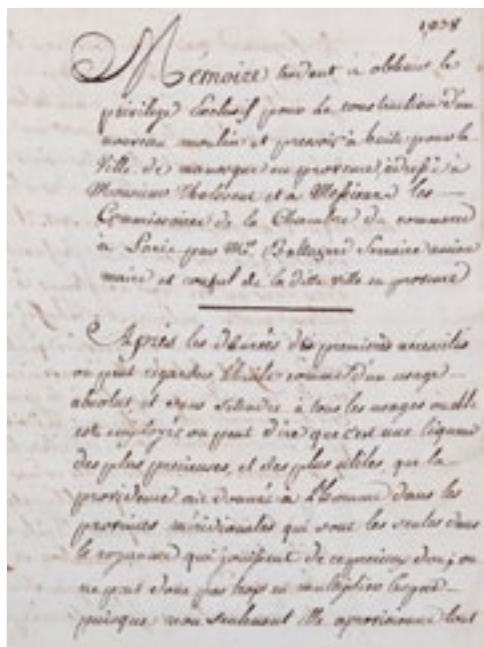 1,028
Mémoire tendant à obtenir le
privilege Exclusif pour la construction d'un
nouveau moulin et pressoir à huile pour la
Ville de manosque en provence, adressé à
Monsieur et à Messieurs les
Commissaires de la Chambre du commerce
à Paris par Mr. ancien
maire et consul de la ditte ville en provence
Après les denrées des premieres nécessités
on peut regarder l'huile comme d'un usage
absolut et sans à tous les usages ou elle
est employée on peut dire que c'est une liqueur
des plus precieuses, et des plus utiles, que la
providence ait donné à l'homme dans les
provinces méridionales qui sont les seules dans
le royaume qui jouissent de ce precieux don; on
ne peut donc pas trop en multiplier
puisque non seulement elle aprovisionne tout